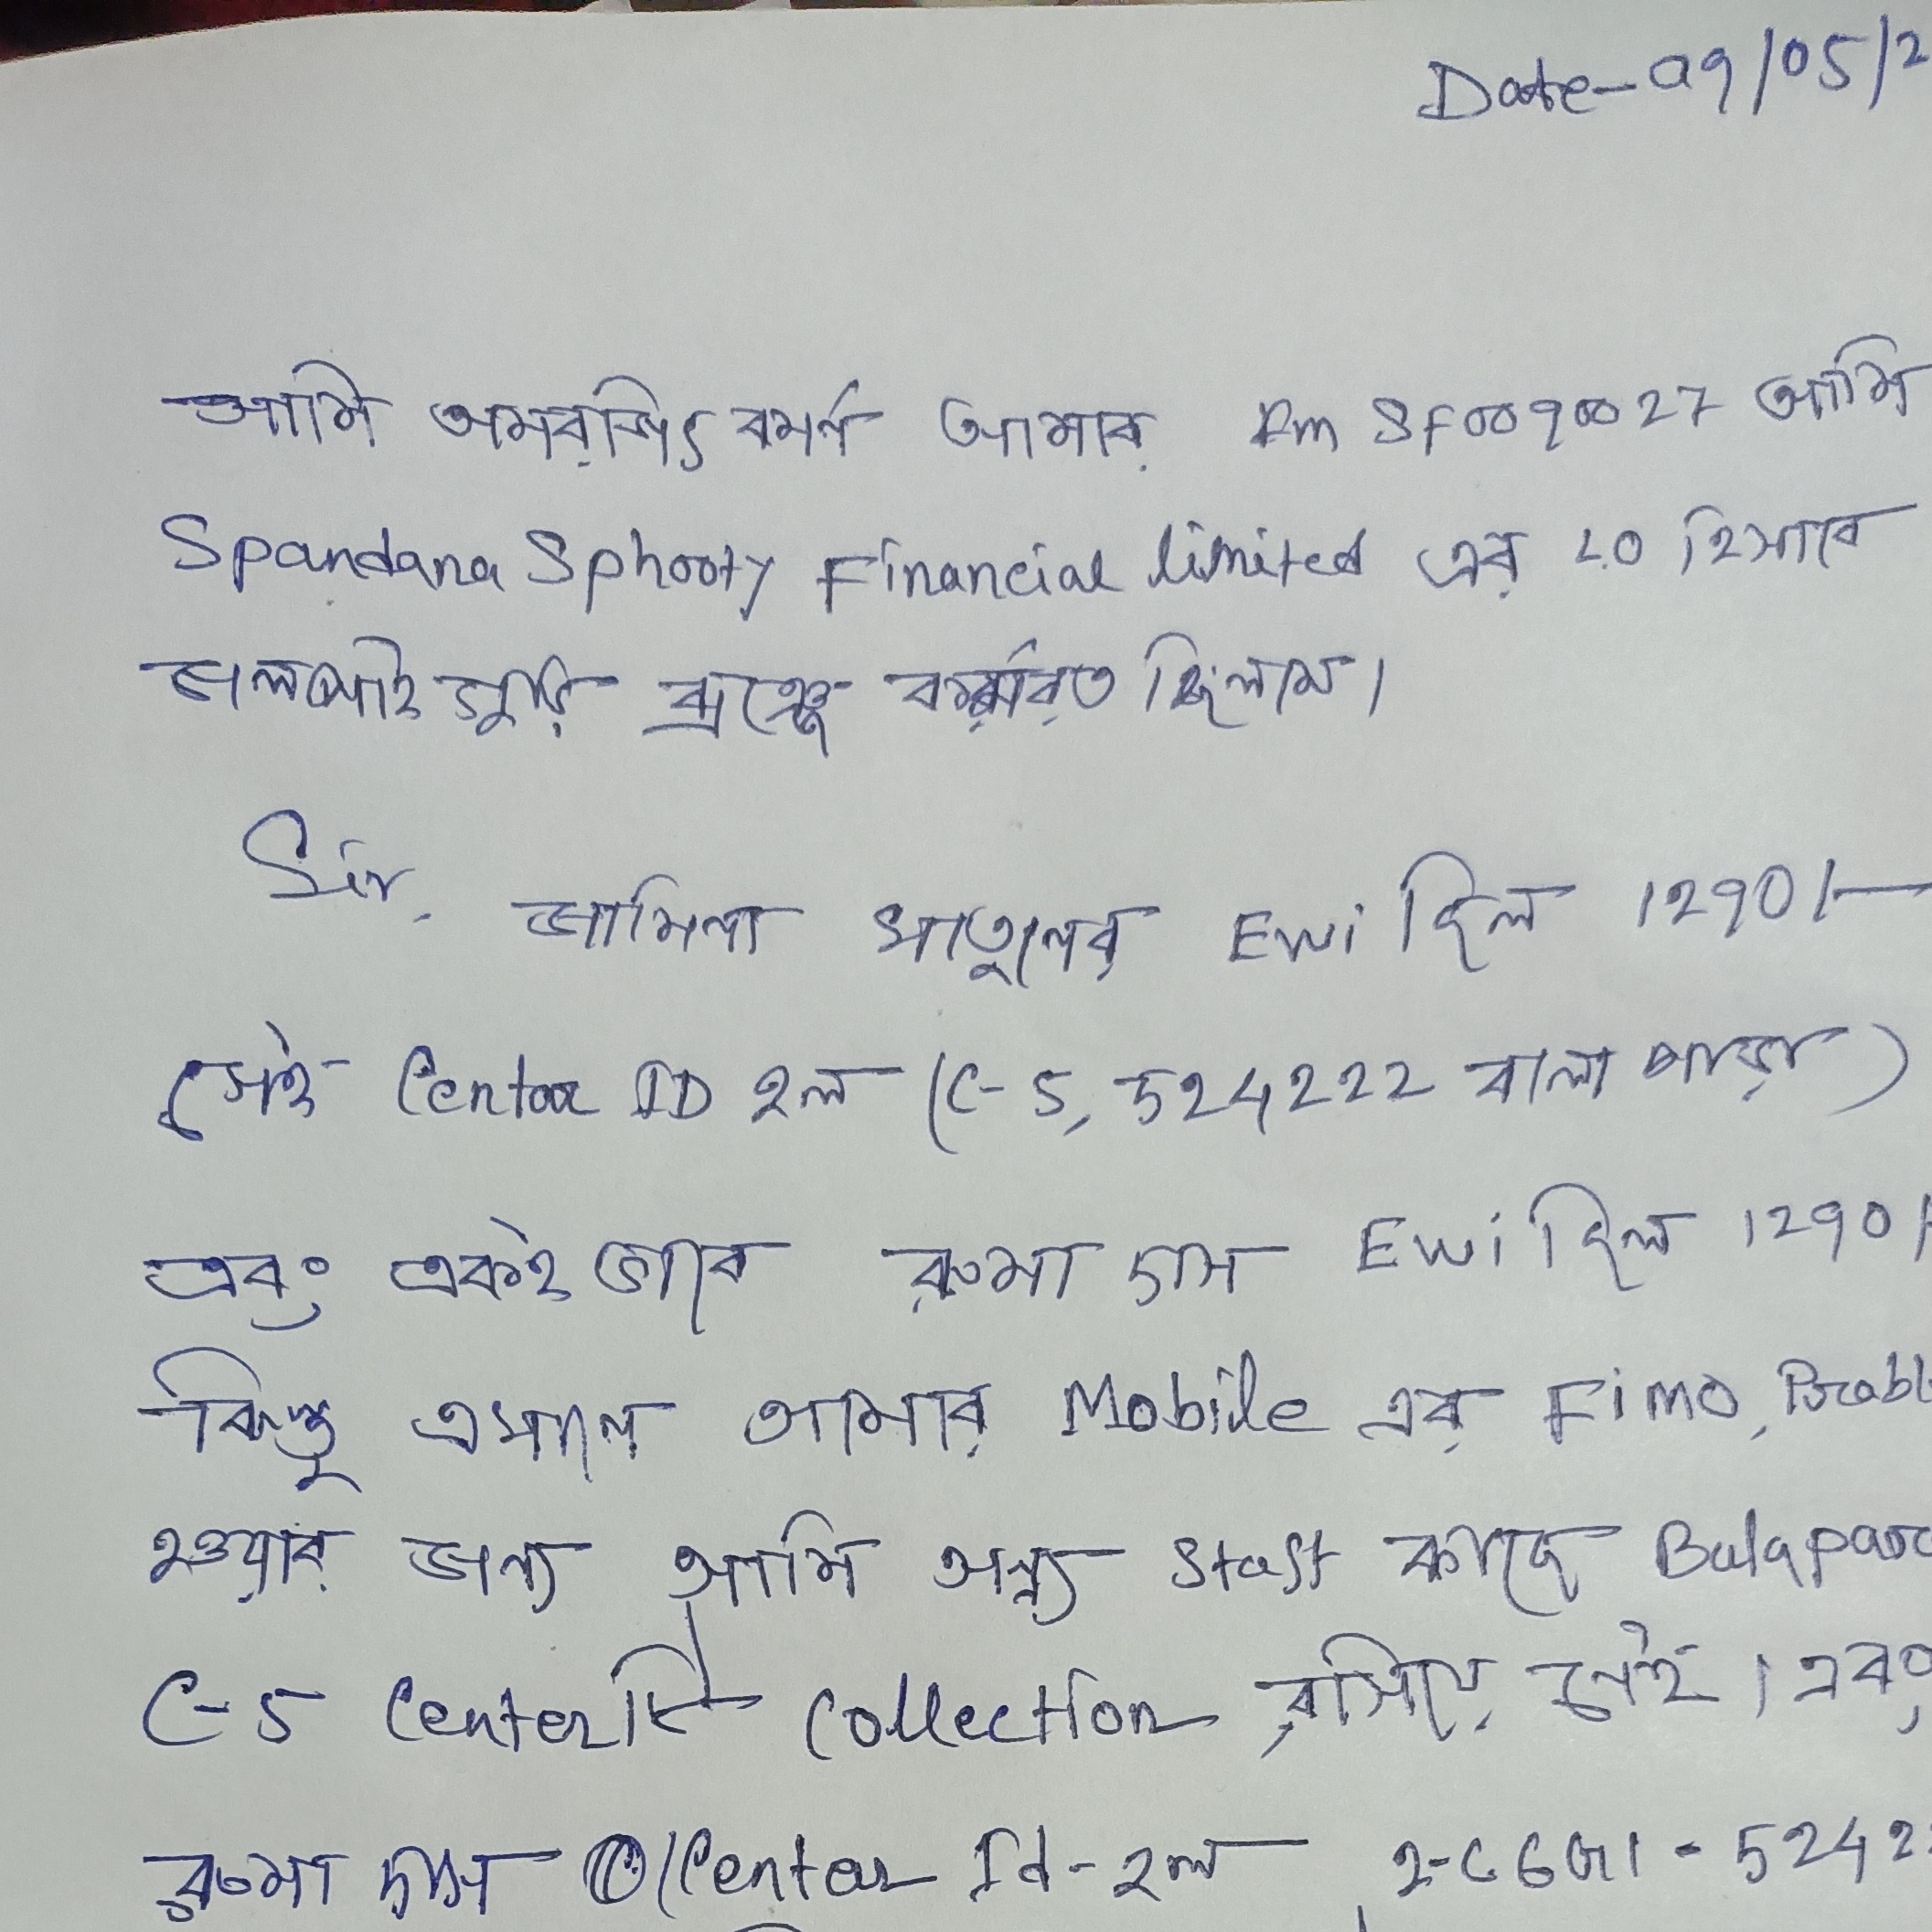 Date-09/05/2
আমি অমরজিৎ বমর্ন আমার Em SF0090027 আমি
Spandana Sphooty Financial limited এর LO হিসাবে
জলপাইগুড়ি ব্রাঞ্চে কর্মরত ছিলাম।
Sir, জামিলা খাতুনের Ewi ছিল 1290/-
সেই Center ID হল (C-5, 524222 বালা পাড়া)
এবং একই ভাবে রুমা দাস Ewi ছিল 1290/
কিন্তু এখানে আমার Mobile এর Fimo, Probl
হওয়ার জন্য আমি অন্য Staff কাছে Balapara
C-5 Centerটি Collection বসিয়ে নেই। এবং
রুমা দাস Center Id-হল 5242